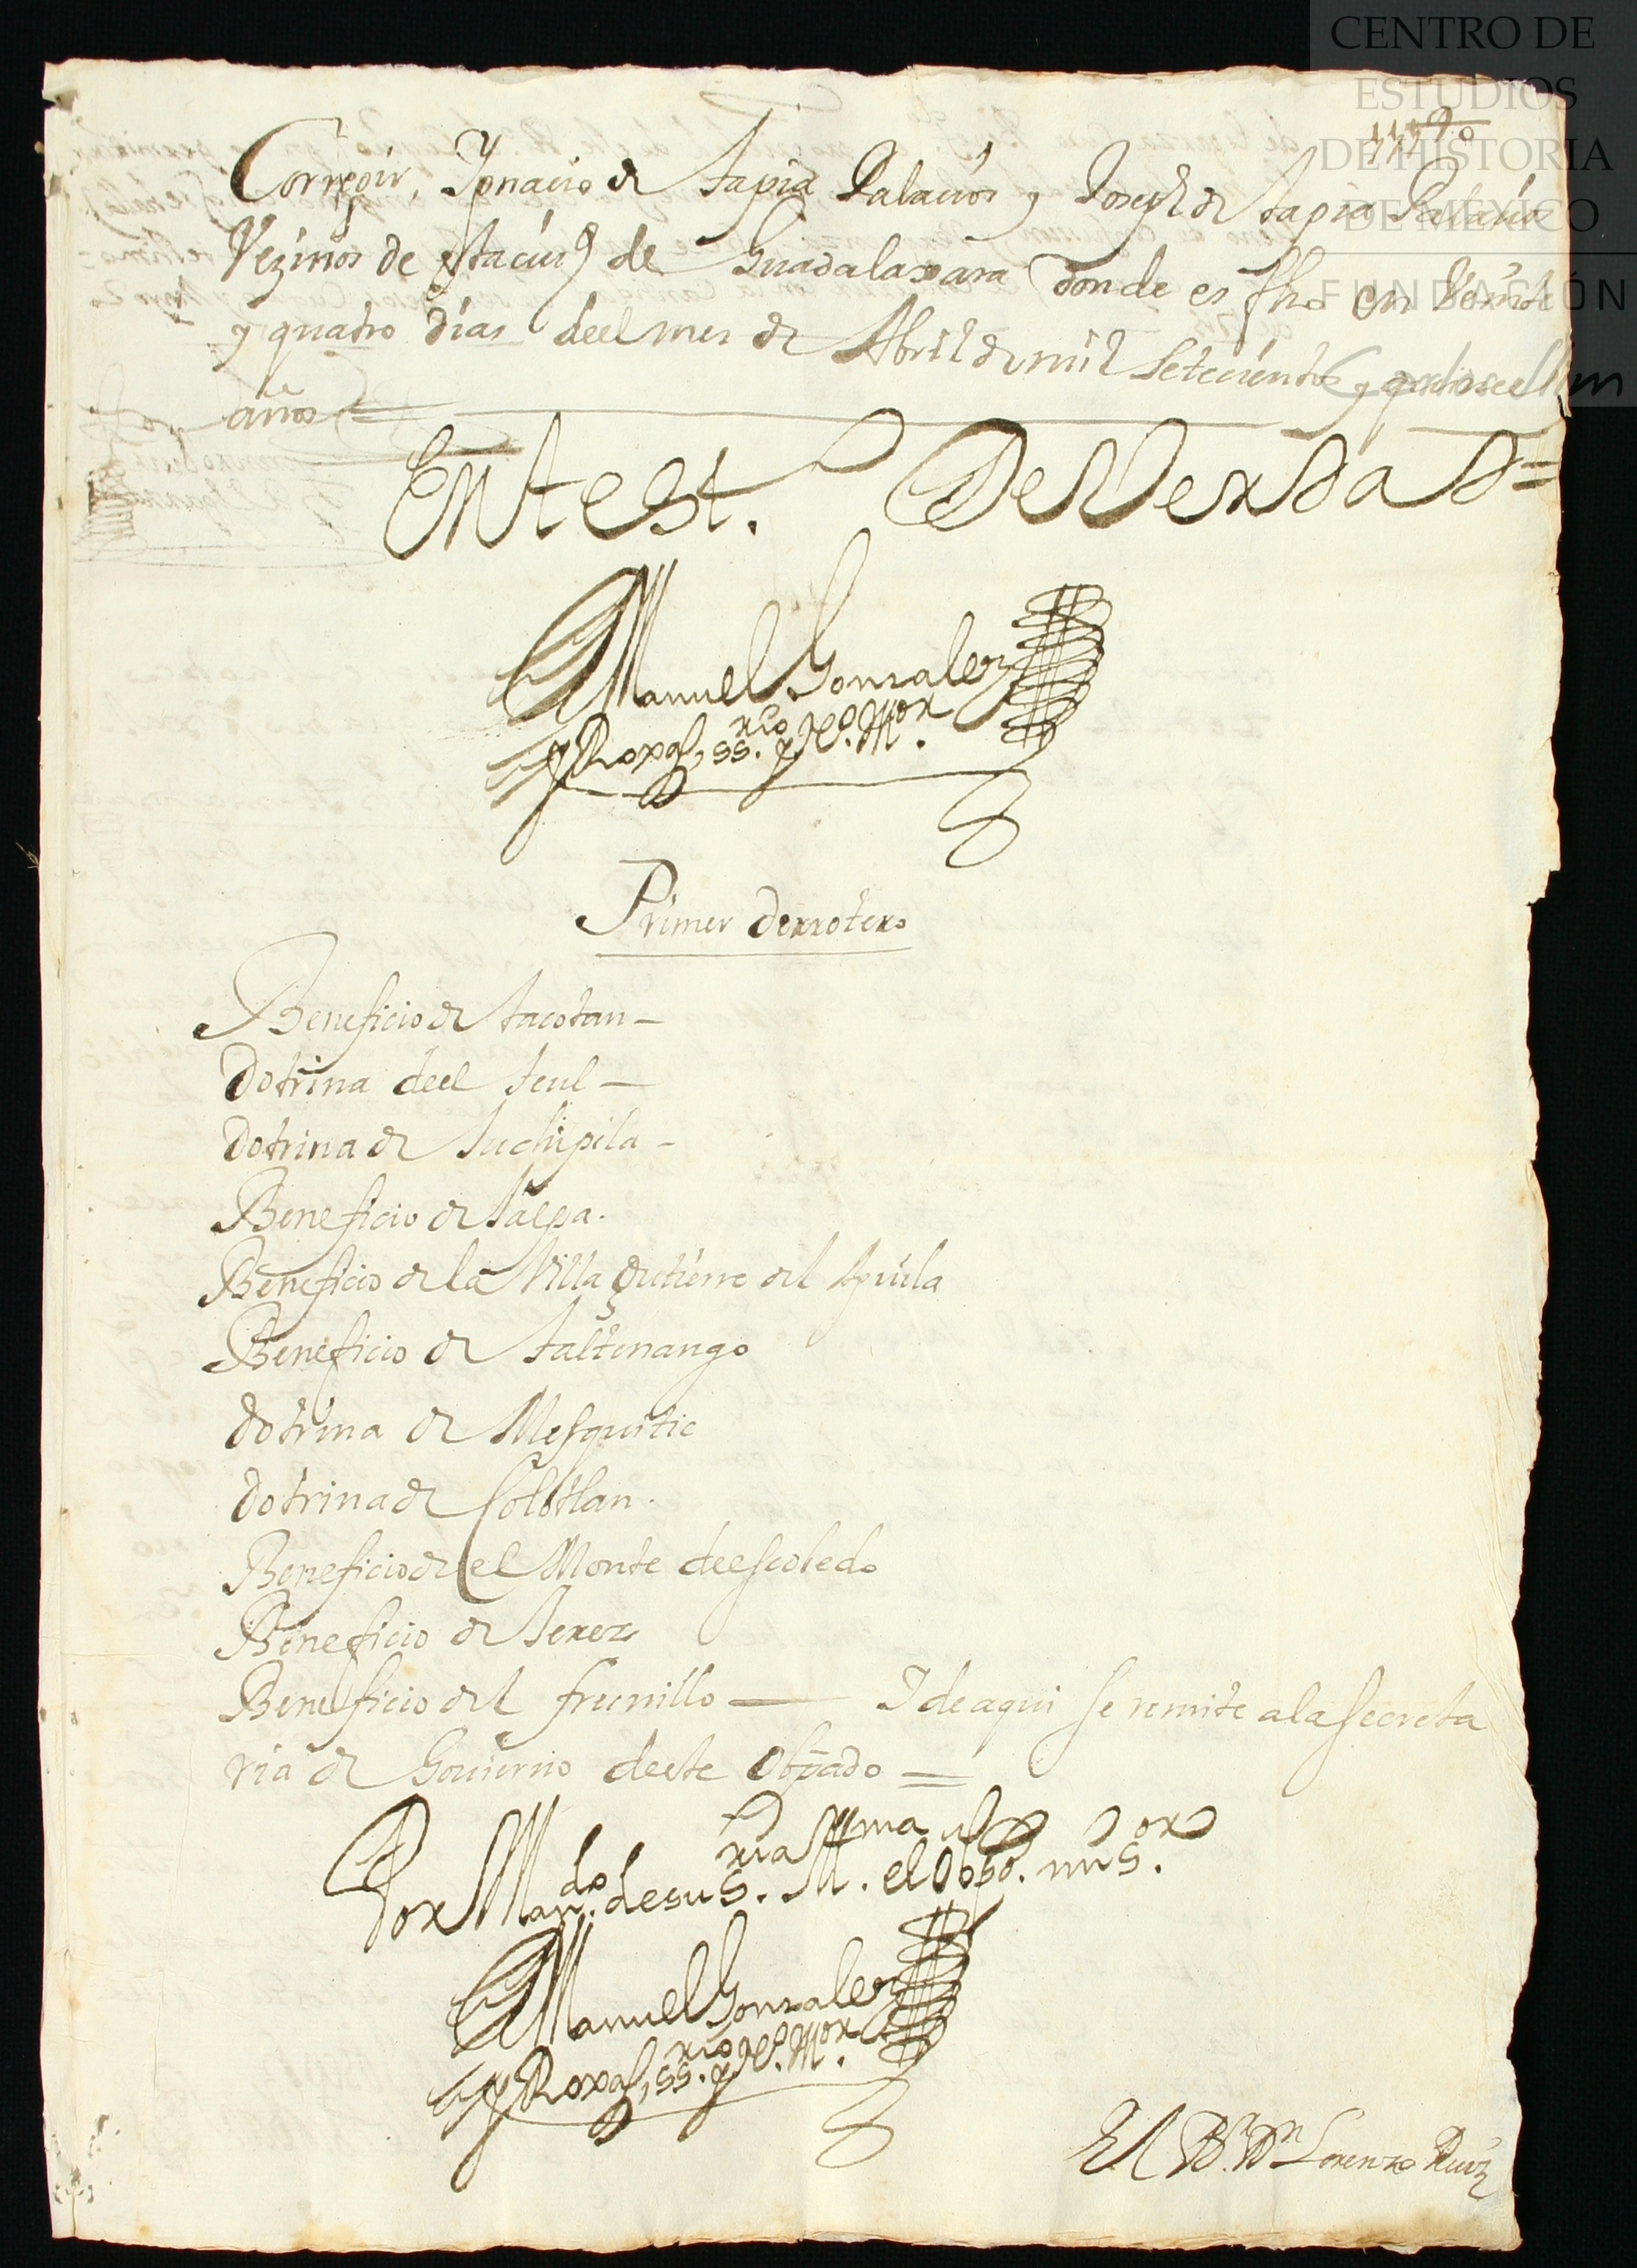 CENTRO DE
ESTUDIOS
DE HISTORIA
DE MÉXICO
FUNDACIÓN
Corregir, Ygnacio de tapia Palacios y Joseph de tapia Palacios
Vezinos de esta ciud de Guadalaxara donde es fho en Veinte
y quatro dias deel mes de Abril de mil Setecientos y quince
años
En test. De Verdad=
Manuel Gonzalez
y Roxas, ssrio. y No. Mor.
Primer derrotero
Beneficio de tacotan –
Dotrina deel teul –
Dotrina de Juchipila –
Beneficio de Jalpa.
Beneficio de la Villa Gutierre del Aguila
Beneficio de taltenango
dotrina de Mesquitic
dotrina de Colotlan.
Beneficio de el Monte deescobedo
Beneficio de Jerez
Beneficio del fresnillo — I de aqui se remite a la secreta
ria de Govierno deeste Obpado =
Por Mando. de su Sria. Illma. el Obpo. mi Sor.
Manuel Gonzalez
y Roxas, ssrio. y No. Mor.
El Br. Dn Lorenzo Ruiz